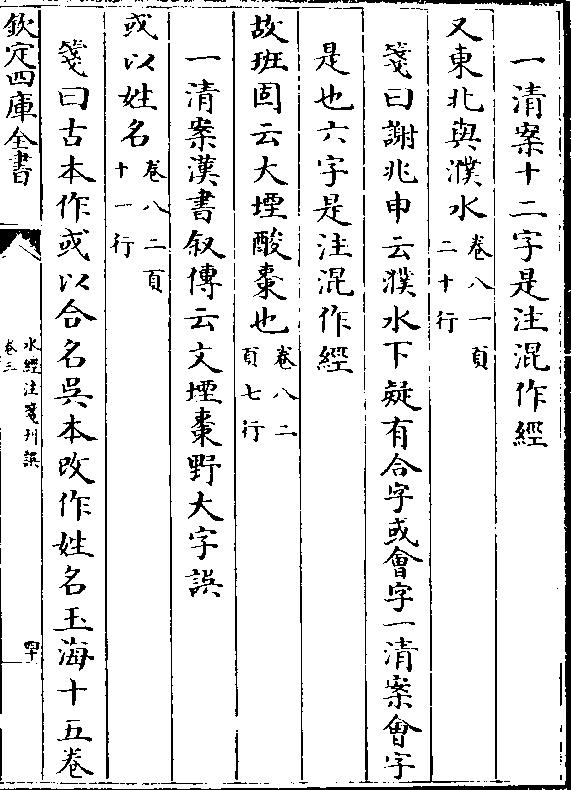 一清案十二字是注混作經
又東北與濮水卷八一頁二十行
箋曰謝兆申云濮水下疑有合字或會字一清案會字
是也六字是注混作經
故班固云大堙酸棗也卷八二頁七行
一清案漢書叙傳云文堙棗野大字誤
或以姓名卷八二頁十一行
箋曰古本作或以合名吳本改作姓名玉海十五卷
欽定四庫全書
水經注箋刊誤
卷三
四十